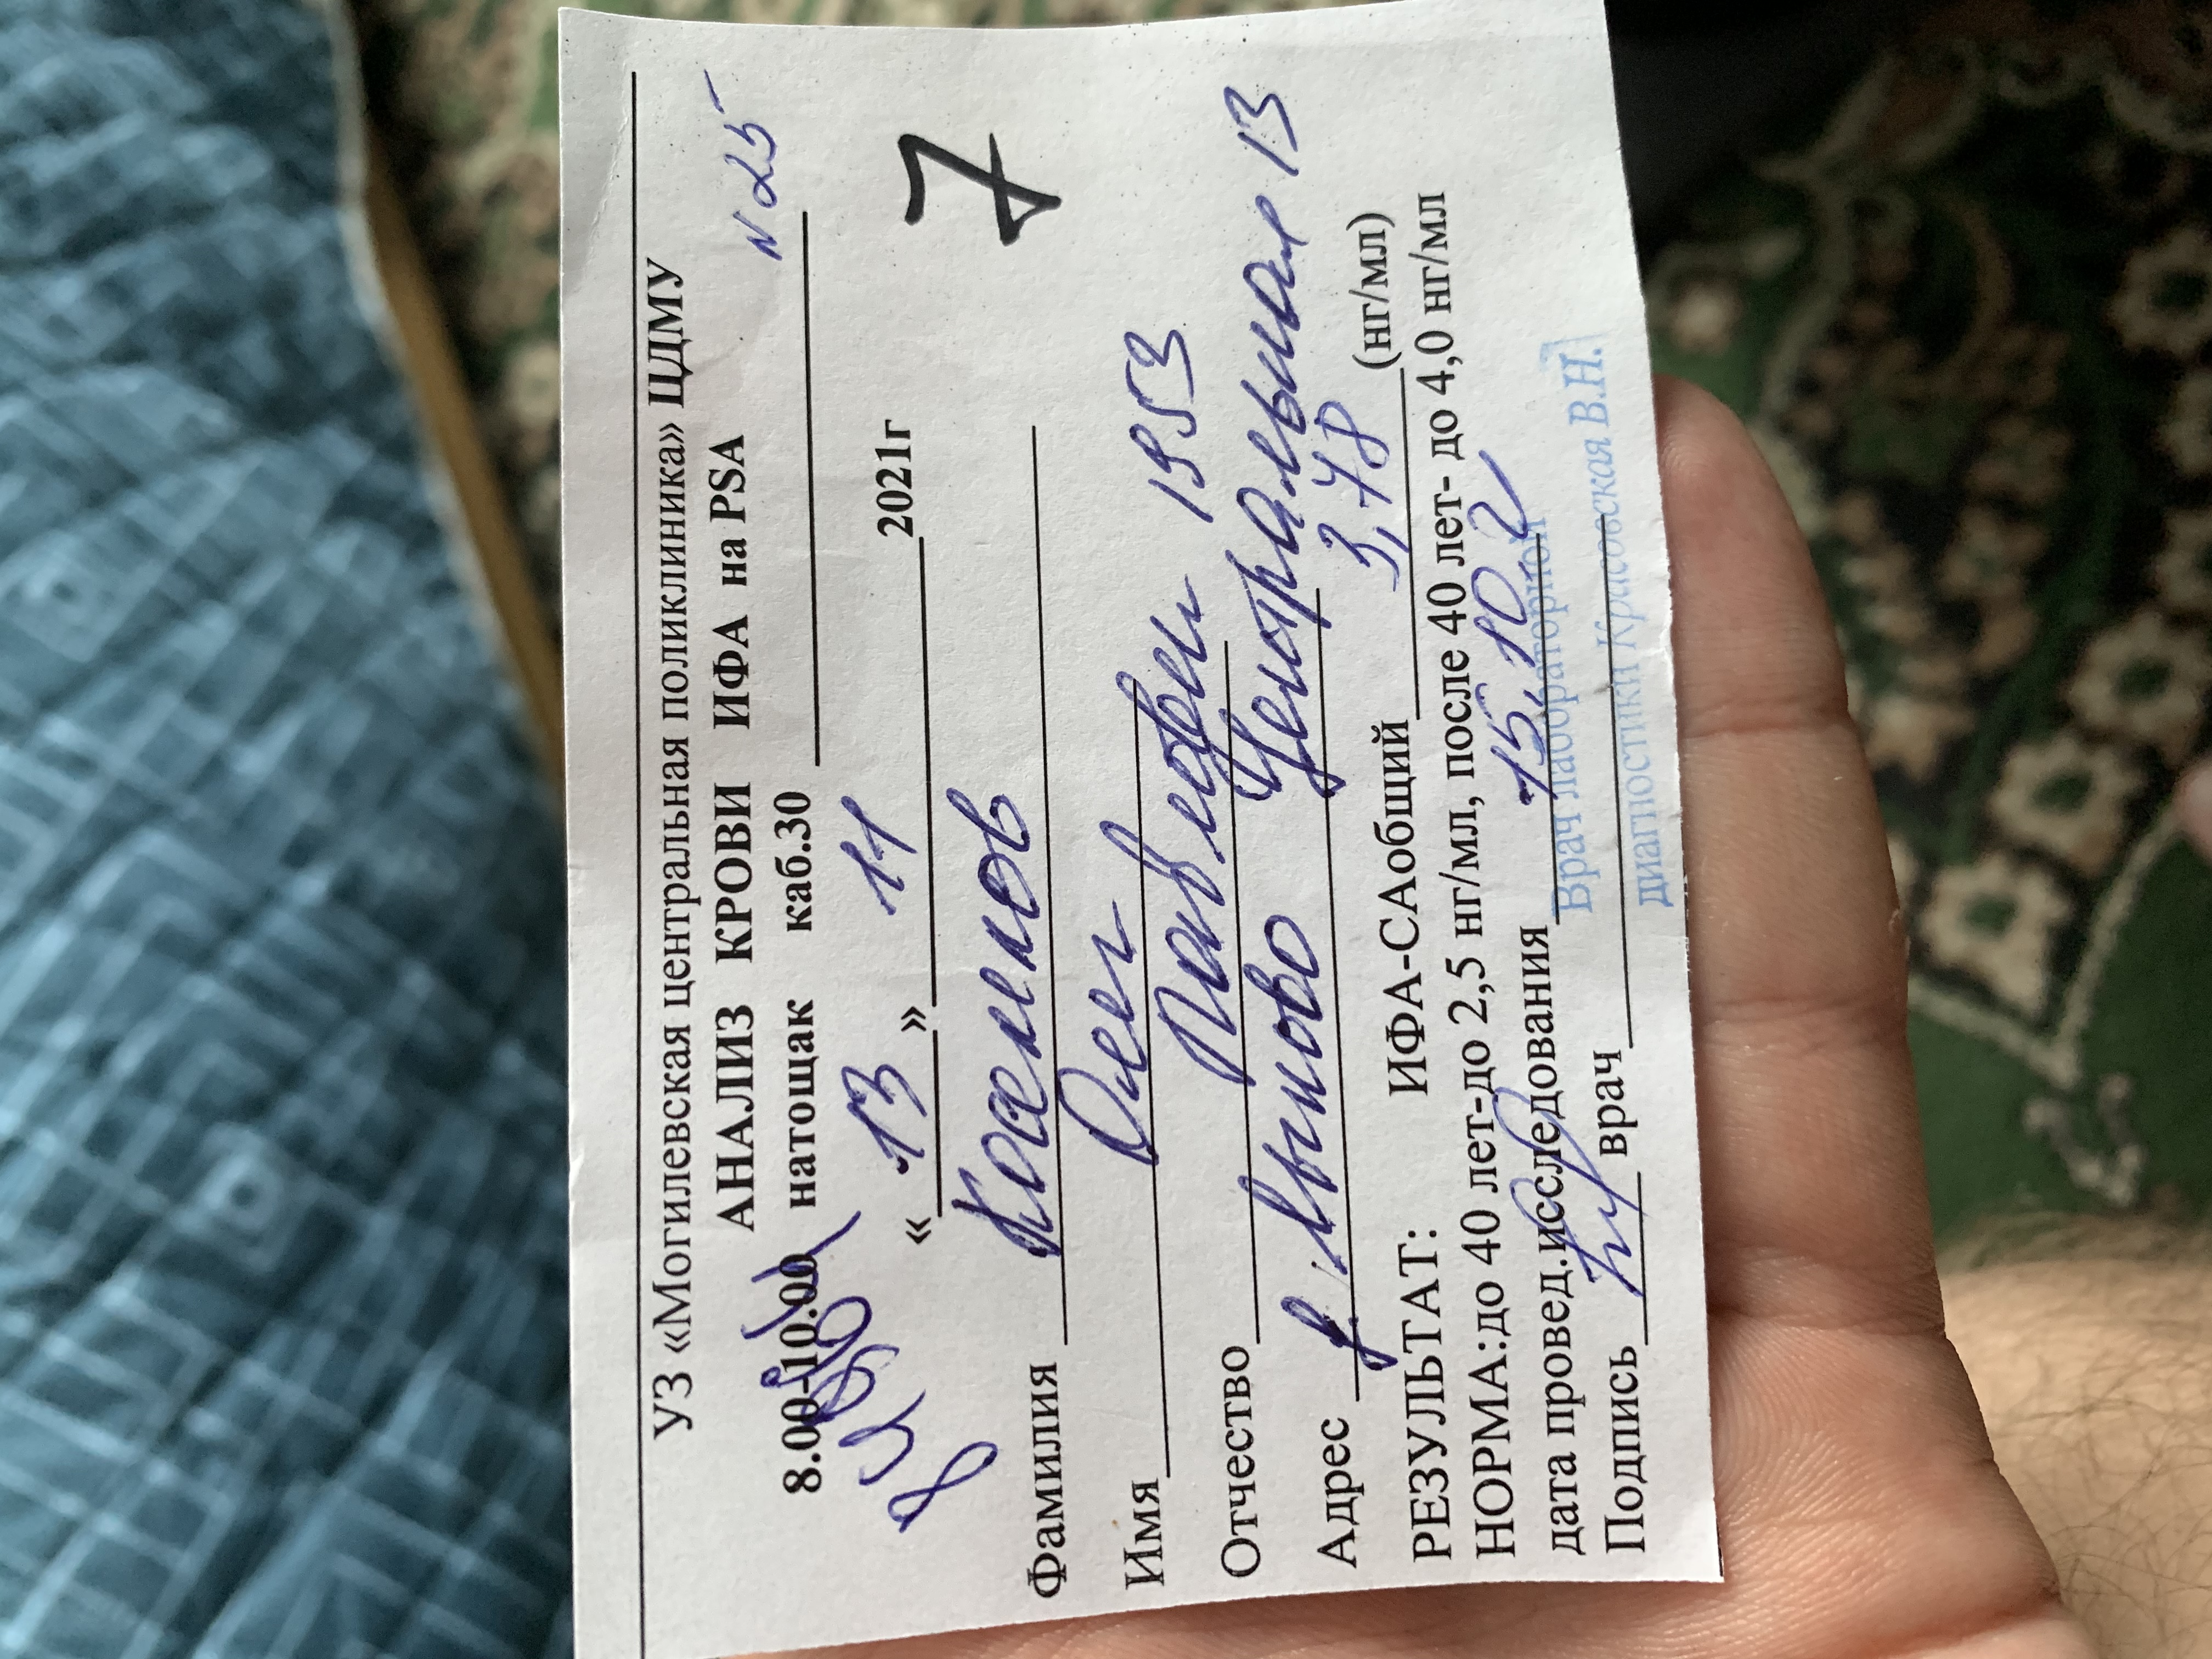 УЗ «Могилевская центральная поликлиника» ЦДМУ
АНАЛИЗ КРОВИ ИФА на PSA
N 25
8.00-10.00 натощак каб.30
« 13 » 11 2021г
7
Фамилия Косемов
Имя Олег
Отчество Павлович 1953
Адрес Центральная 13
РЕЗУЛЬТАТ: ИФА-САобщий 3,78 (нг/мл)
НОРМА:до 40 лет-до 2,5 нг/мл, после 40 лет- до 4,0 нг/мл
дата провед.исследования 15.10.2
Врач лабораторной
Подпись врач
диагностики Красовская В.Н.